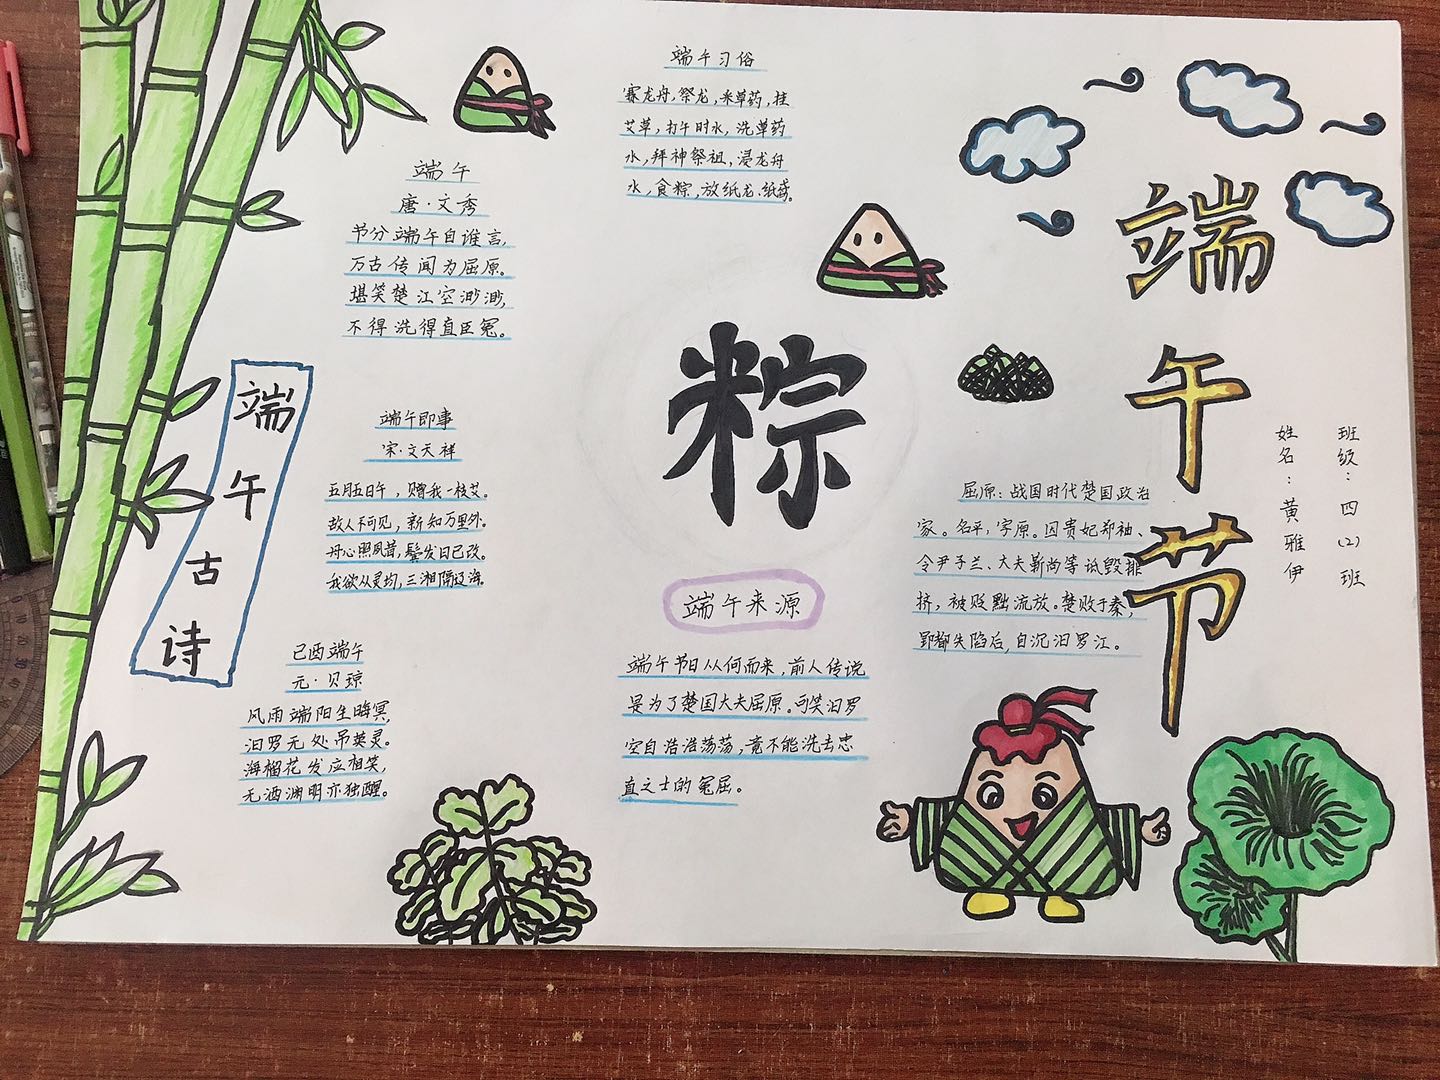 端午习俗
赛龙舟,祭龙,采草药,挂
艾草,打午时水,洗草药
水,拜神祭祖,浸龙舟
水,食粽,放纸龙、纸鸢。
端午
唐·文秀
节分端午自谁言,
万古传闻为屈原。
堪笑楚江空渺渺,
不得洗得直臣冤。
端午即事
宋·文天祥
五月五日午,赠我一枝艾。
故人不可见,新知万里外。
丹心照夙昔,鬓发日已改。
我欲从灵均,三湘隔辽海。
己酉端午
元·贝琼
风雨端阳生晦冥,
汨罗无处吊英灵。
海榴花发应相笑,
无酒渊明亦独醒。
端午古诗
粽
端午来源
端午节日从何而来,前人传说
是为了楚国大夫屈原。可笑汨罗
空自浩浩荡荡,竟不能洗去忠
直之士的冤屈。
端午节
屈原:战国时代楚国政治
家。名平,字原。因贵妃郑袖、
令尹子兰、大夫靳尚等诋毁排
挤,被贬黜流放。楚败于秦,
郢都失陷后,自沉汨罗江。
班级:四(2)班
姓名:黄雅伊